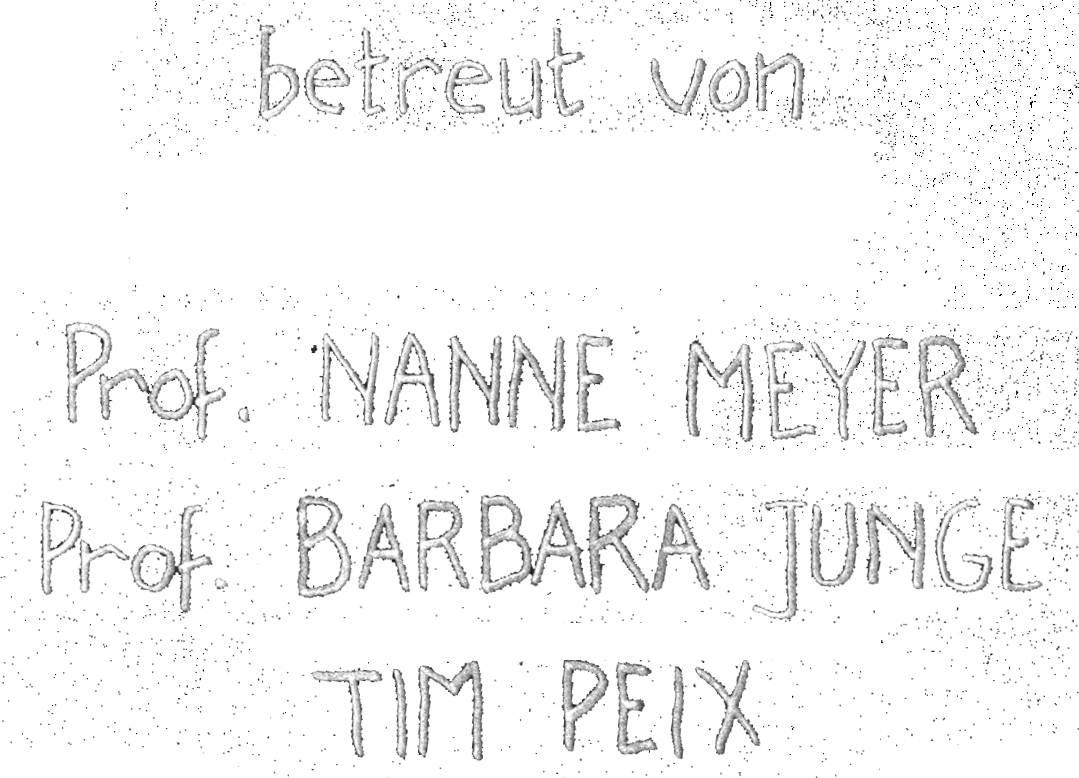 betreut von
Prof. NANNE MEYER
Prof. BARBARA JUNGE
TIM PEIX